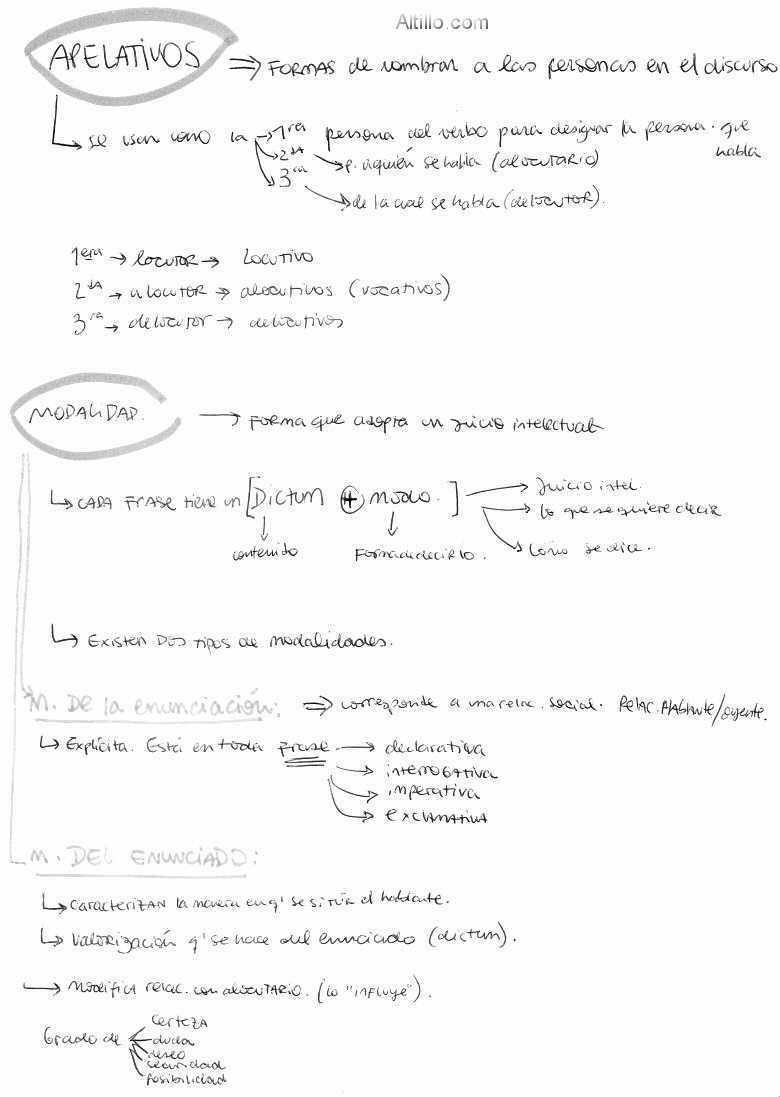 Altillo.com
APELATIVOS ⇒ FORMAS de nombrar a las personas en el discurso
↳ se usan como la → 1ra persona del verbo para designar la persona que habla
→ 2da → p. a quién se habla (alocutario)
→ 3ra → de la cual se habla (delocutor).
1era → locutor → Locutivo
2da → alocutor → alocutivos (vocativos)
3ra → delocutor → delocutivos
MODALIDAD. → Forma que adopta un juicio intelectual
↳ CADA FRASE tiene un [Dictum + modo.] → Juicio intel.
→ lo que se quiere decir
↓ contenido ↓ Forma de decirlo. → Cómo se dice.
↳ Existen DOS tipos de modalidades.
M. De la enunciación: ⇒ corresponde a una relac. social. Relac. Hablante/oyente.
↳ Explícita. Está en toda frase → declarativa
→ interrogativa
→ imperativa
→ exclamativa
M. DEL ENUNCIADO:
↳ Caracterizan la manera en q' se sitúa el hablante.
↳ Valorización q' se hace del enunciado (dictum).
→ Modifica relac. con alocutario. (lo "influye").
Grado de certeza
duda
deseo
seguridad
posibilidad